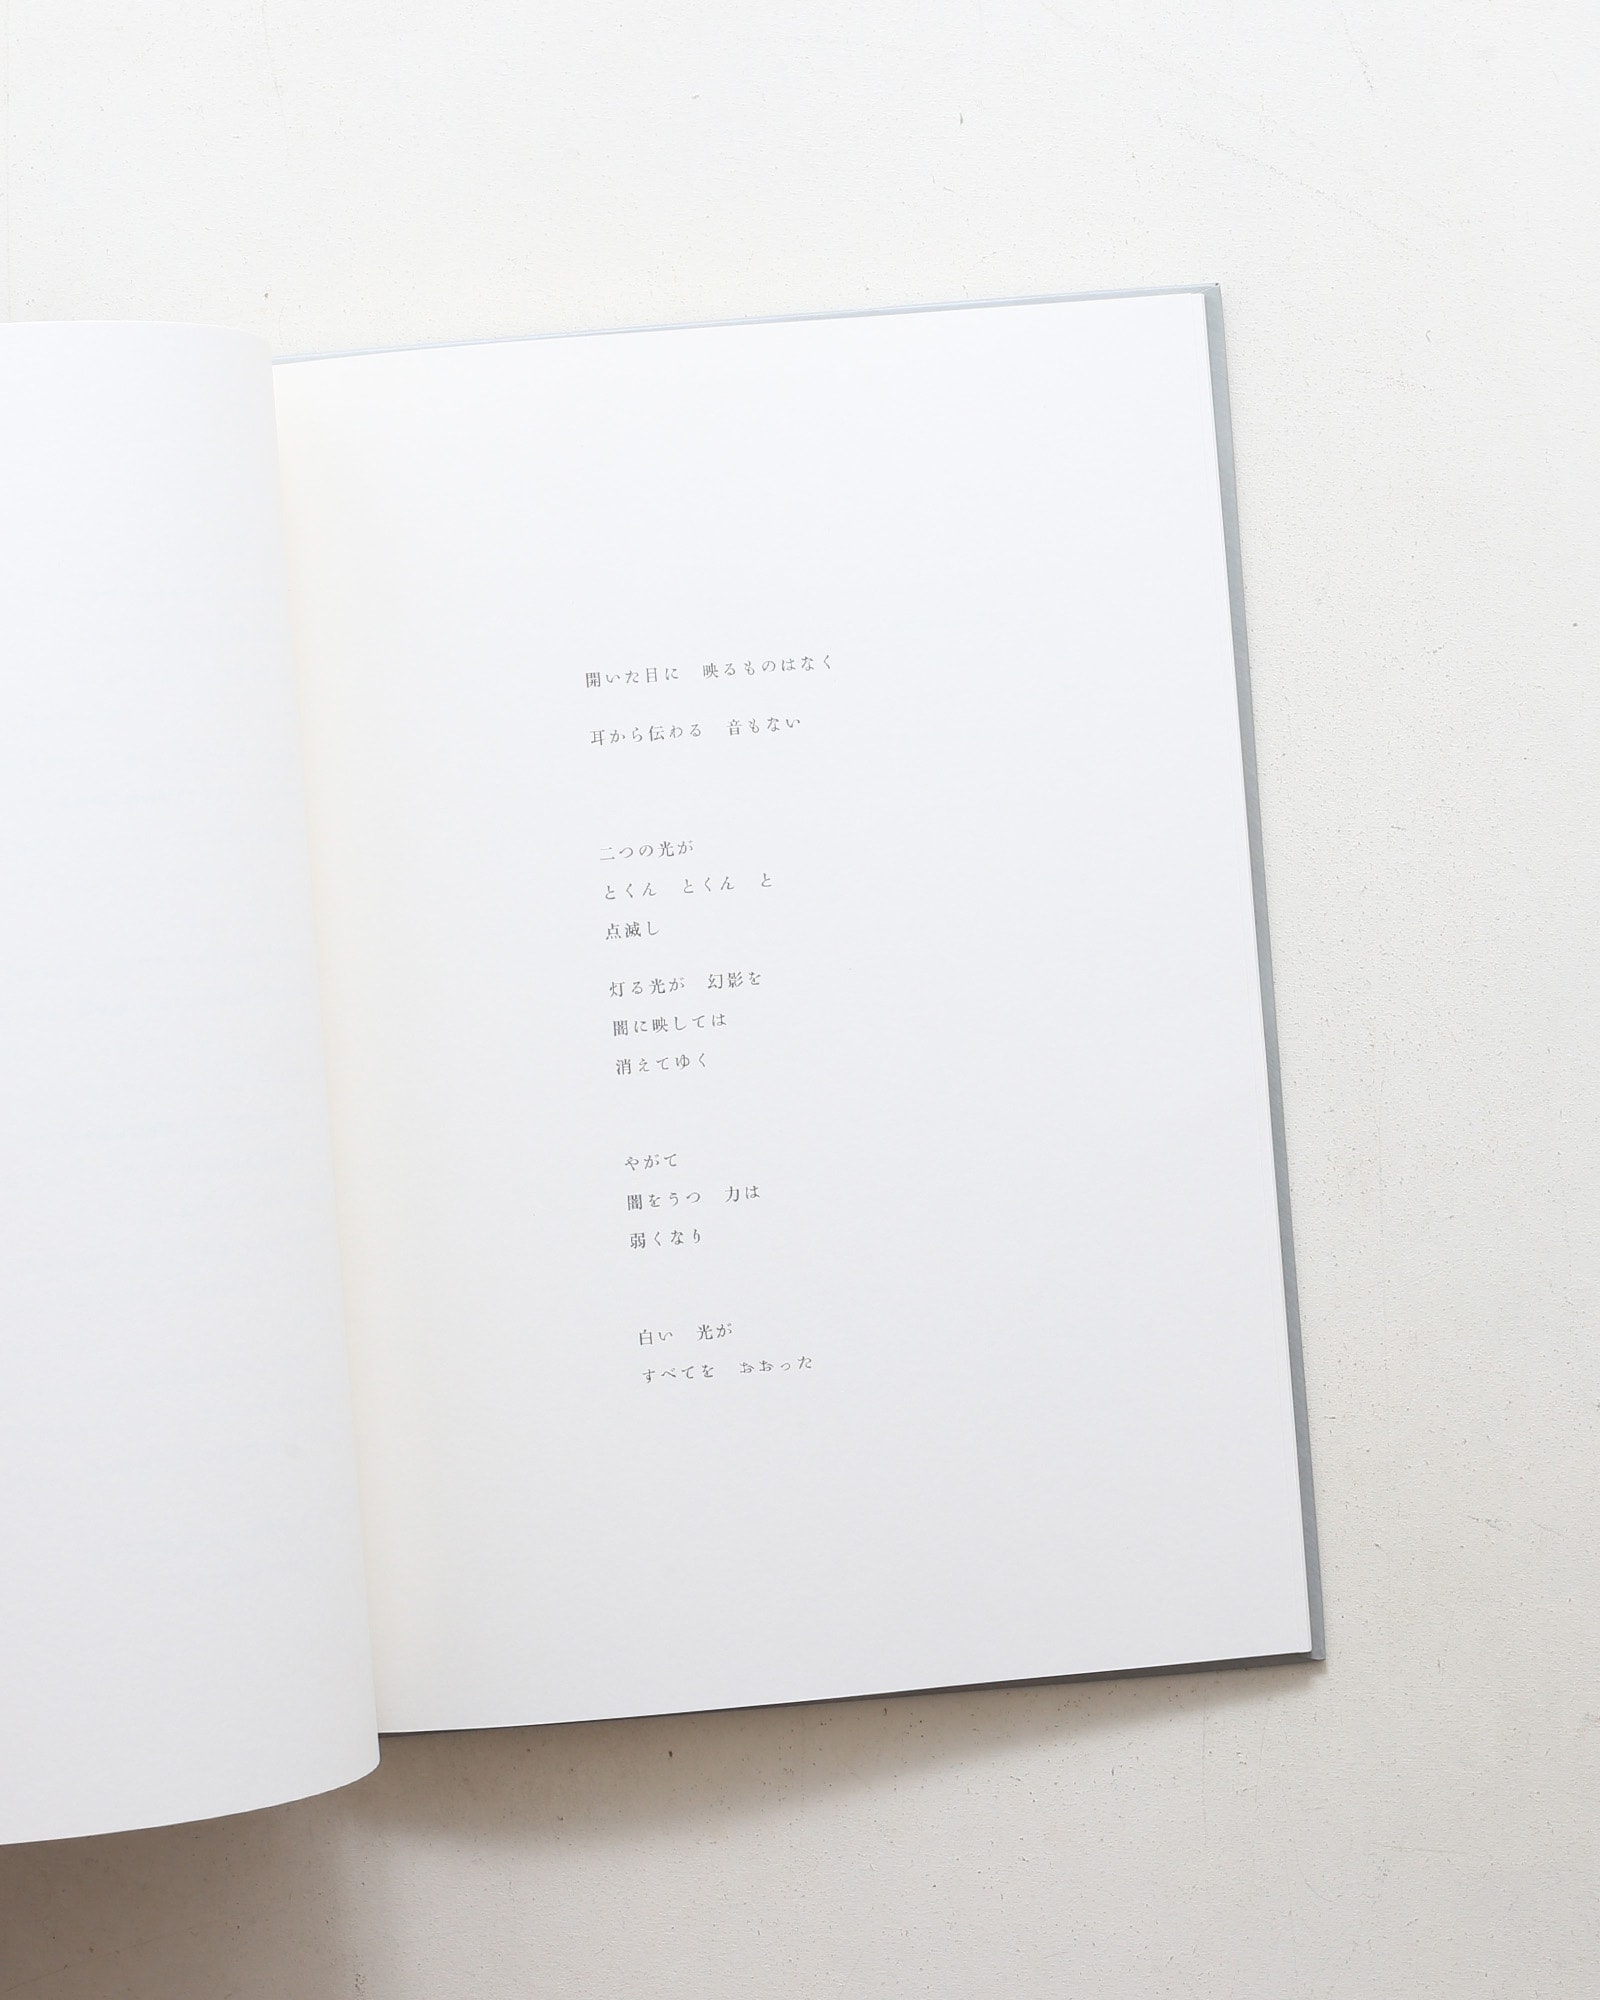 開いた目に　映るものはなく
耳から伝わる　音もない
二つの光が
とくん　とくん　と
点滅し
灯る光が　幻影を
闇に映しては
消えてゆく
やがて
闇をうつ　力は
弱くなり
白い　光が
すべてを　おおった